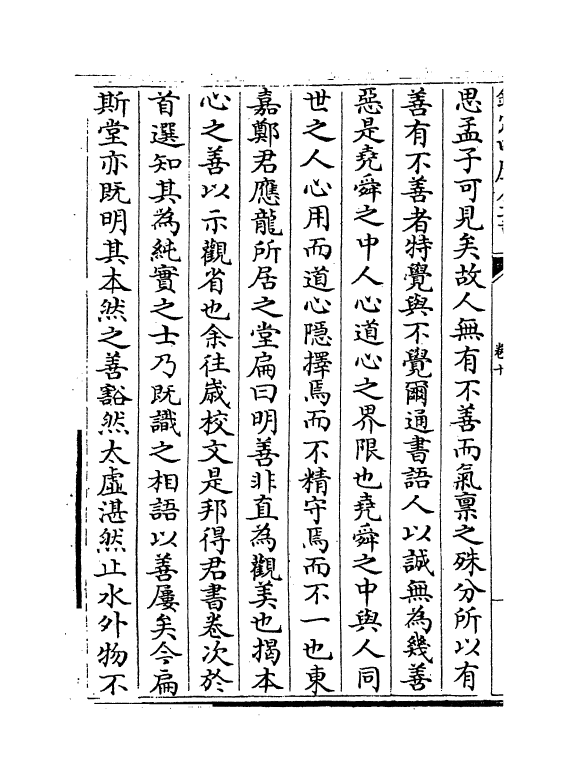 思孟子可見矣故人無有不善而氣稟之殊分所以有
善有不善者特覺與不覺爾通書語人以誠無為幾善
惡是堯舜之中人心道心之界限也堯舜之中與人同
世之人心用而道心隱擇焉而不精守焉而不一也東
嘉鄭君應龍所居之堂扁曰明善非直為觀美也揭本
心之善以示觀省也余往歲校文是邦得君書卷次於
首選知其為純實之士乃既識之相語以善屢矣今扁
斯堂亦既明其本然之善豁然太虛湛然止水外物不